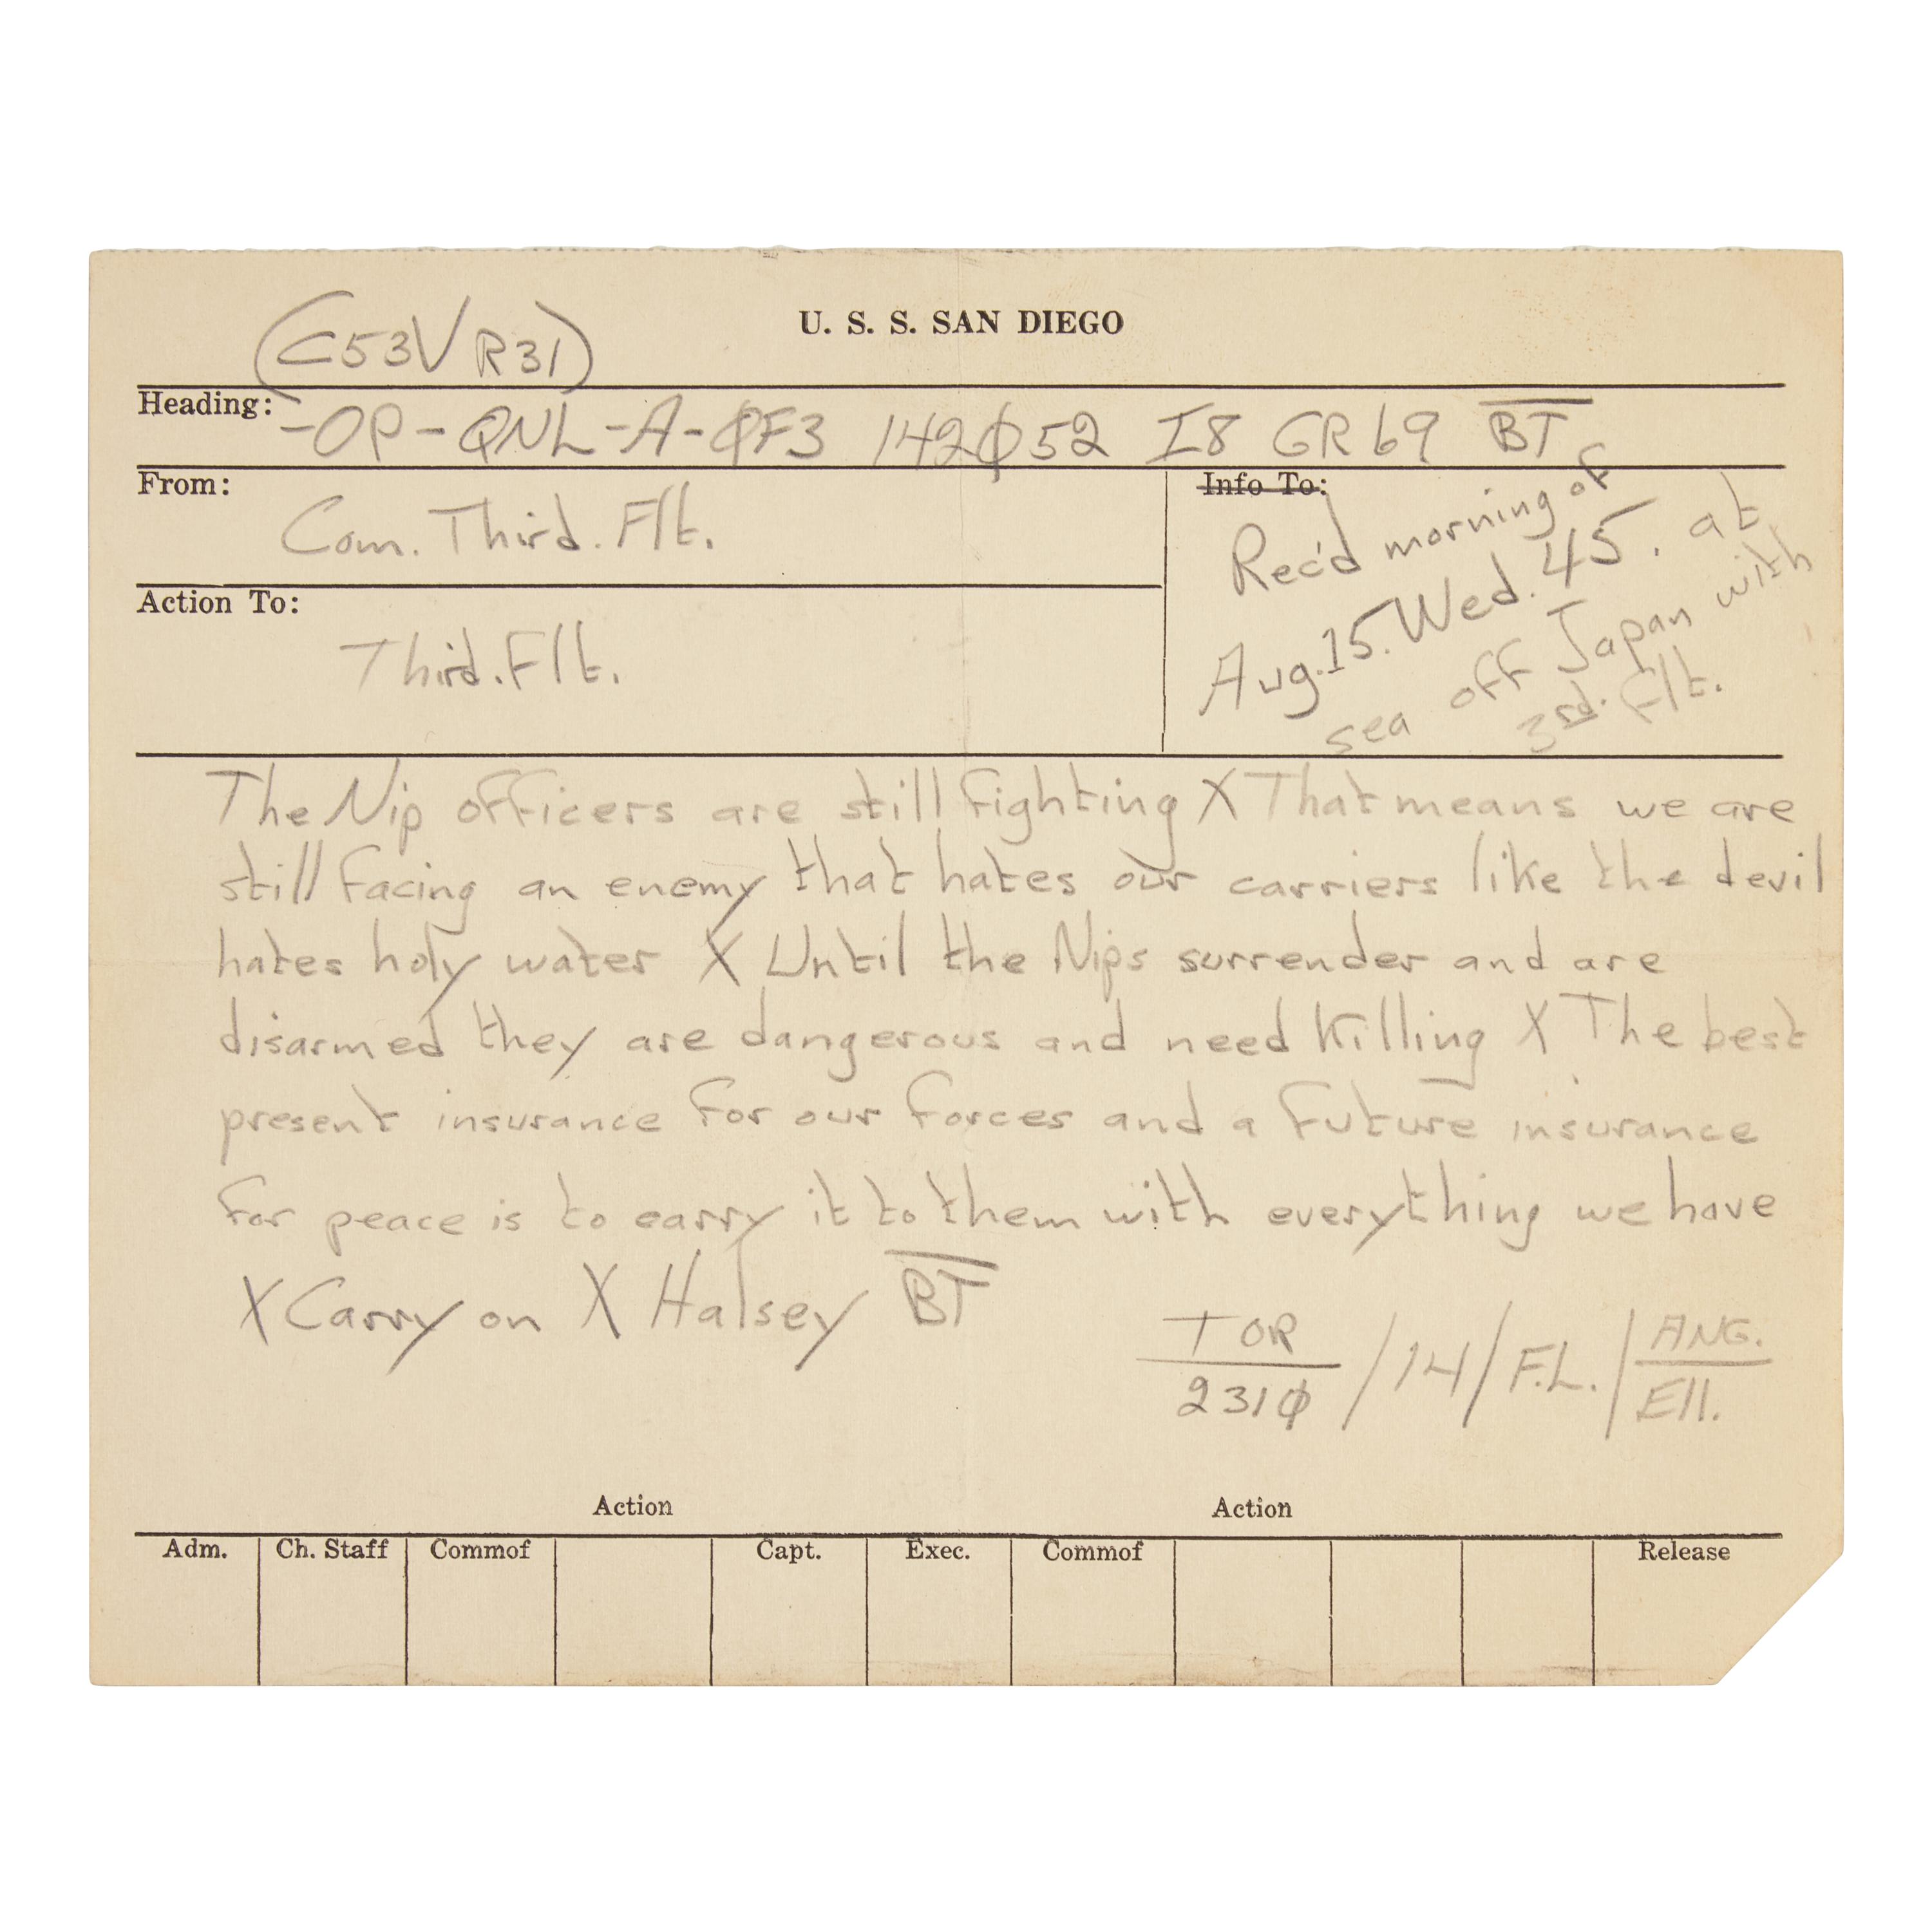 U. S. S. SAN DIEGO
(C53V R31)
Heading: -OP-QNL-A-ØF3 142Ø52 I8 GR 69 BT
From:
Com. Third. Flt.
Info To:
Rec'd morning of
Aug. 15. Wed. 45. at
sea off Japan with
3rd. Flt.
Action To:
Third. Flt.
The Nip officers are still fighting X That means we are
still facing an enemy that hates our carriers like the devil
hates holy water X Until the Nips surrender and are
disarmed they are dangerous and need killing X The best
present insurance for our forces and a future insurance
for peace is to carry it to them with everything we have
X Carry on X Halsey BT
TOR / 14 / F.L. / ANG.
231Ø Ell.
Action Action
Adm. Ch. Staff Commof Capt. Exec. Commof Release